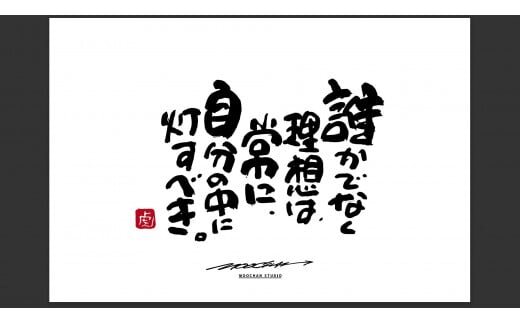 誰かでなく
理想は、
常に、
自分の中に
灯すべき。
虎
WOOCHAN STUDIO